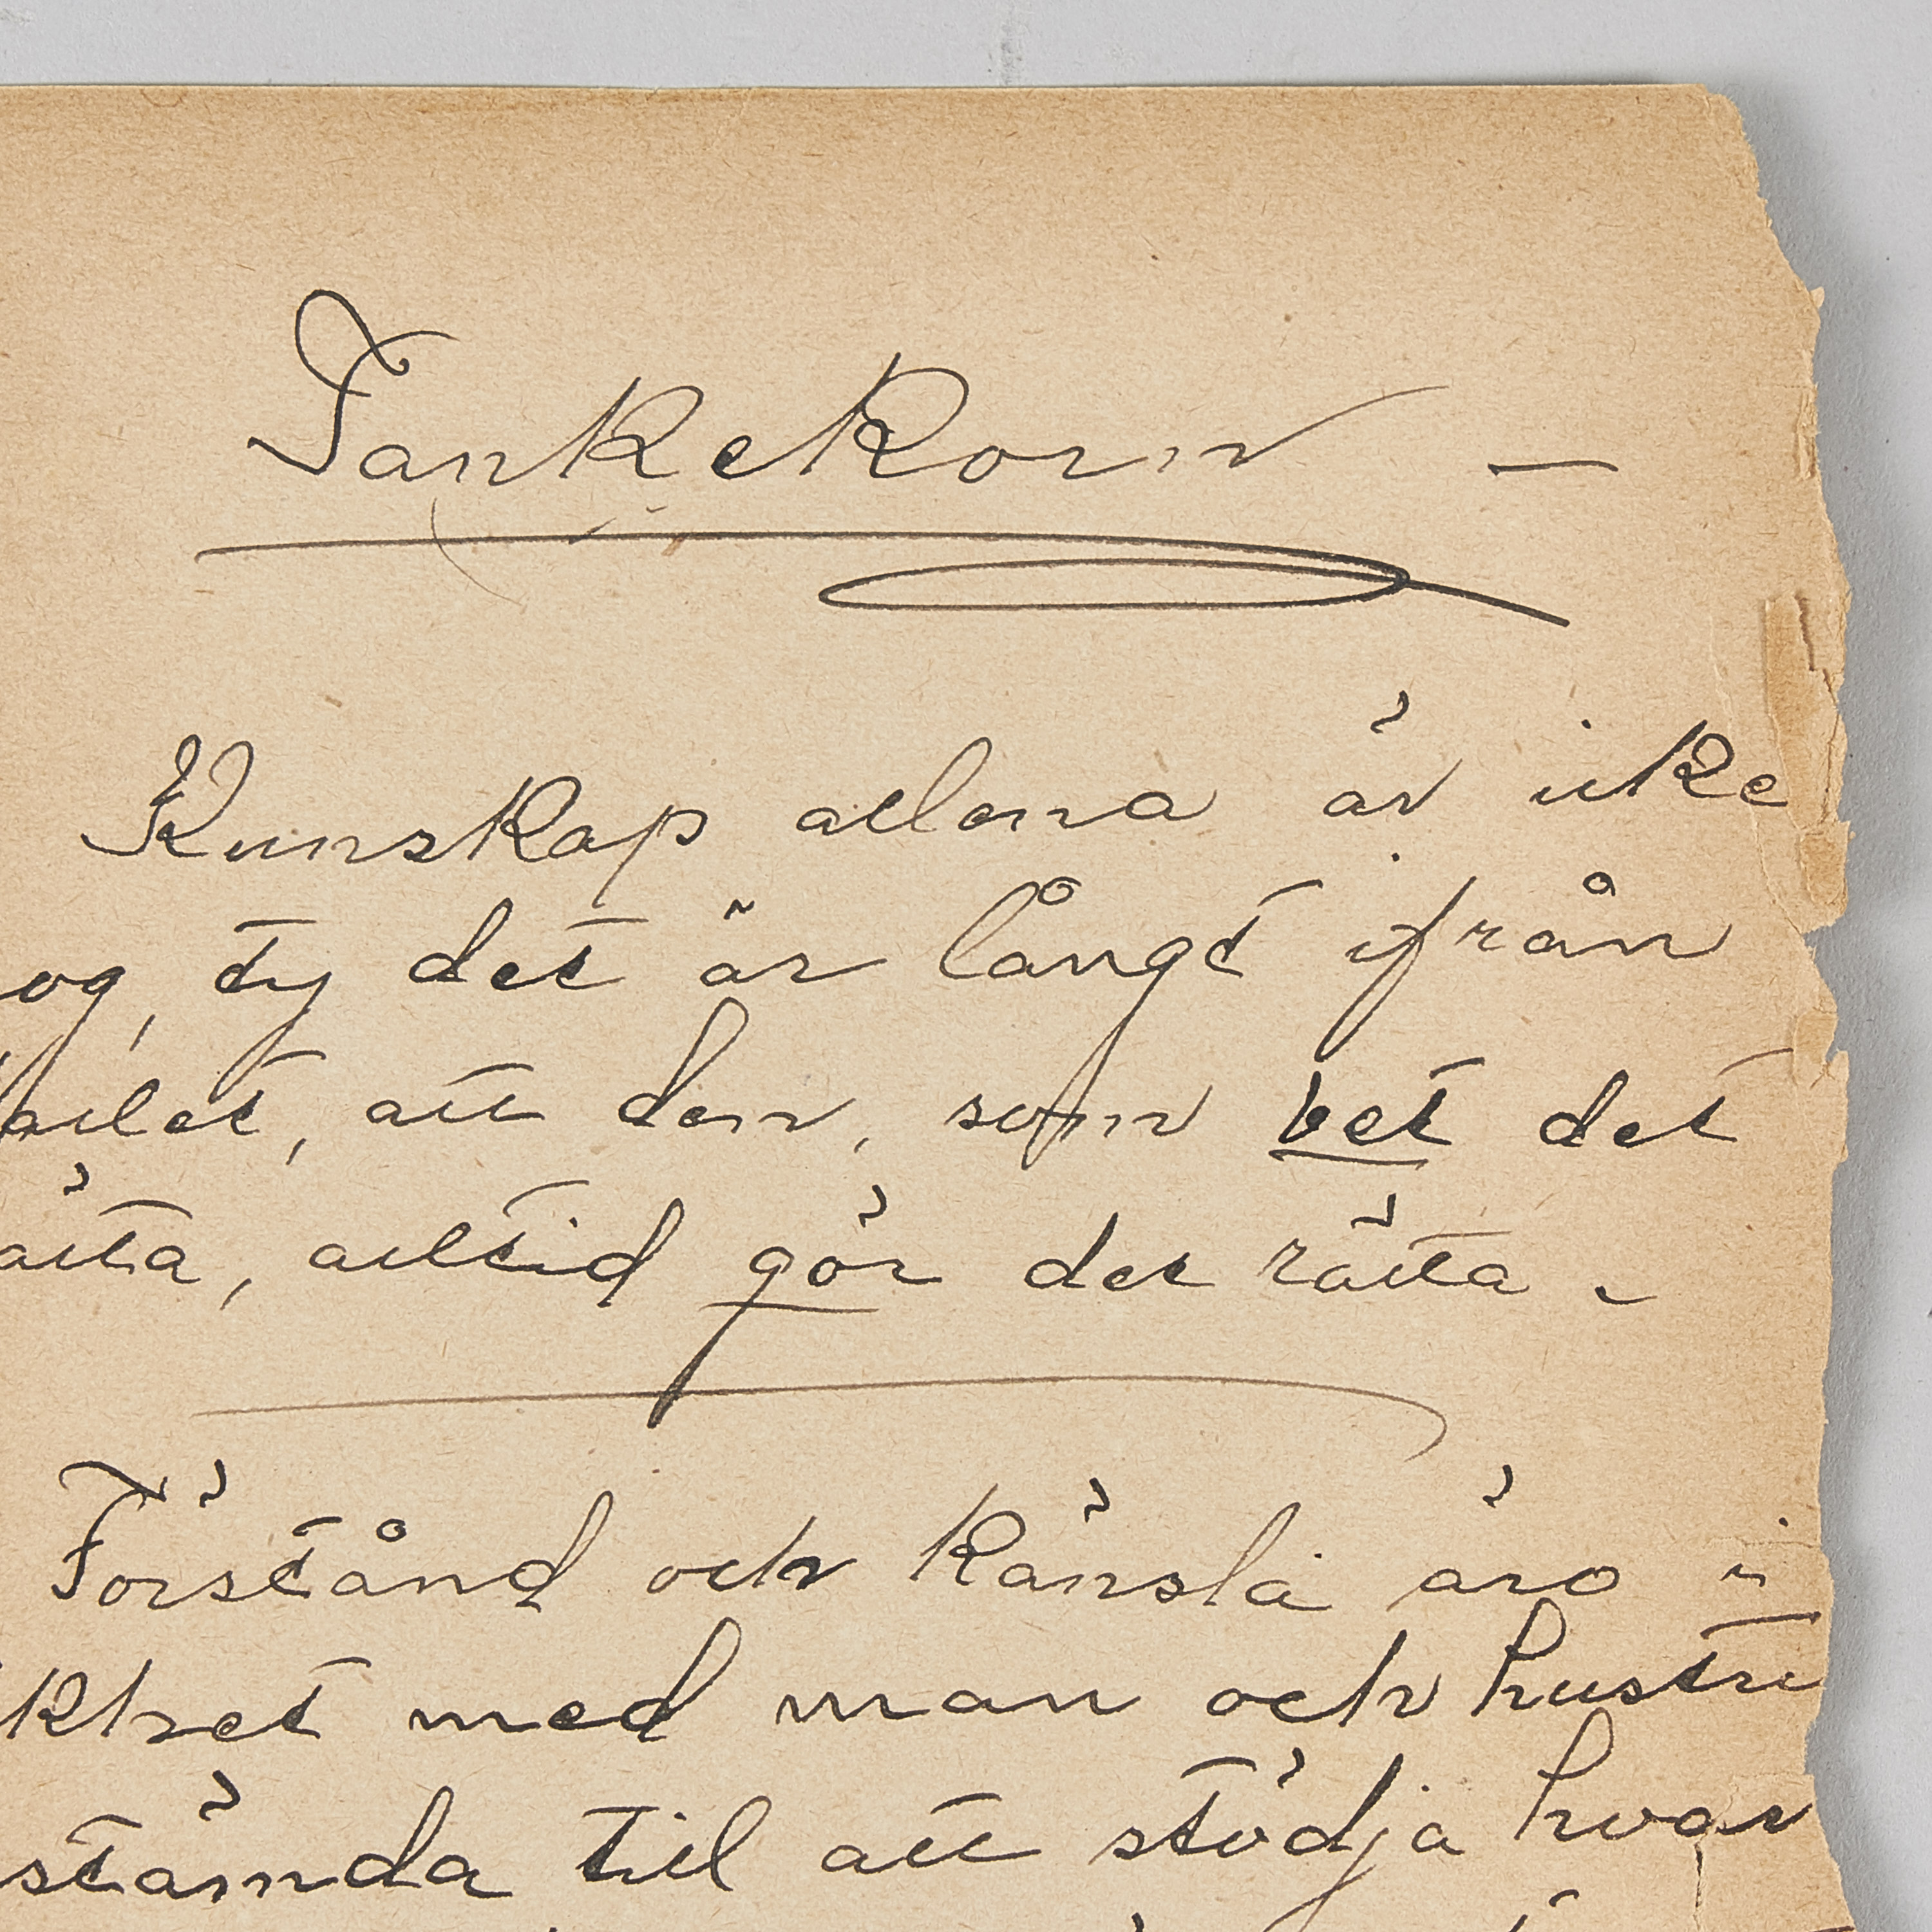 Tankekorn –
Kunskap allena är icke
og, ty det är långt ifrån
allet, att den, som vet det
ätta, alltid gör det rätta.
Förstånd och känsla äro i
ktet med man och hustru
stämda till att stödja hvar